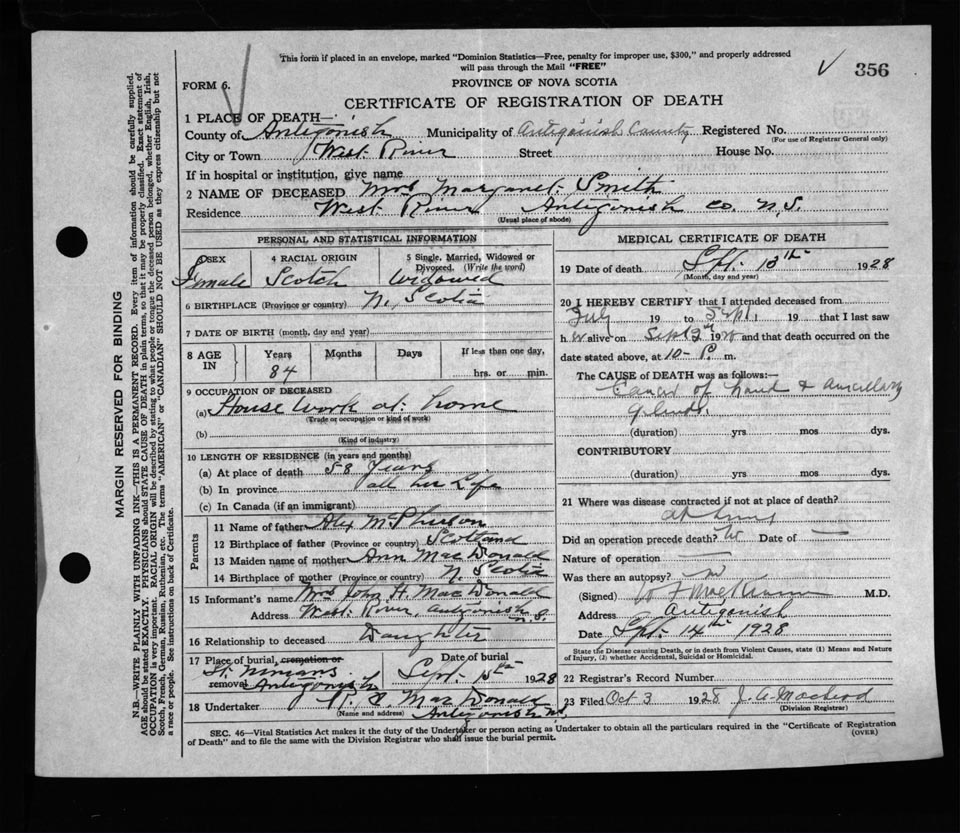 This form if placed in an envelope, marked "Dominion Statistics—Free, penalty for improper use, $300," and properly addressed
will pass through the Mail "FREE"
356
FORM 6.
PROVINCE OF NOVA SCOTIA
CERTIFICATE OF REGISTRATION OF DEATH
1 PLACE OF DEATH—
County of Antigonish Municipality of Antigonish County Registered No.
(For use of Registrar General only)
City or Town West River Street House No.
If in hospital or institution, give name
2 NAME OF DECEASED Mrs Margaret Smith
Residence West River Antigonish Co. N.S.
(Usual place of abode)
PERSONAL AND STATISTICAL INFORMATION
3 SEX 4 RACIAL ORIGIN 5 Single, Married, Widowed or Divorced. (Write the word)
Female Scotch Widowed
6 BIRTHPLACE (Province or country) N. Scotia
7 DATE OF BIRTH (month, day and year)
8 AGE IN Years Months Days If less than one day,
84 hrs. or min.
9 OCCUPATION OF DECEASED
(a) House work at home
(Trade or occupation or kind of work)
(b)
(Kind of industry)
10 LENGTH OF RESIDENCE (in years and months)
(a) At place of death 58 years
(b) In province all her Life
(c) In Canada (if an immigrant)
Parents
11 Name of father Alex McPherson
12 Birthplace of father (Province or country) Scotland
13 Maiden name of mother Ann MacDonald
14 Birthplace of mother (Province or country) N. Scotia
15 Informant's name Mrs John H. MacDonald
Address West River, Antigonish N.S.
16 Relationship to deceased Daughter
17 Place of burial, cremation or removal Date of burial
St. Ninians Antigonish Sept. 15th 1928
18 Undertaker MacDonald
(Name and address) Antigonish N.S.
MEDICAL CERTIFICATE OF DEATH
19 Date of death Sept. 13th 1928
(Month, day and year)
20 I HEREBY CERTIFY that I attended deceased from
July 19 to Sept 19 that I last saw
h alive on Sept 2nd 1928 and that death occurred on the
date stated above, at 10- P. m.
The CAUSE OF DEATH was as follows:—
Cancer of hand & axillary
glands.
(duration) yrs mos dys.
CONTRIBUTORY
(duration) yrs mos dys.
21 Where was disease contracted if not at place of death?
at home
Did an operation precede death? no Date of —
Nature of operation —
Was there an autopsy? no
(Signed) M.D.
Address Antigonish
Date Sept. 14th 1928
State the Disease causing Death, or in death from Violent Causes, state (1) Means and Nature
of Injury, (2) whether Accidental, Suicidal or Homicidal.
22 Registrars Record Number
23 Filed Oct 3 1928 J. A. MacLeod
(Division Registrar)
SEC. 46—Vital Statistics Act makes it the duty of the Undertaker or person acting as Undertaker to obtain all the particulars required in the "Certificate of Registration
of Death" and to file the same with the Division Registrar who shall issue the burial permit.
(OVER)
MARGIN RESERVED FOR BINDING
N.B.—WRITE PLAINLY WITH UNFADING INK—THIS IS A PERMANENT RECORD. Every item of information should be carefully supplied.
AGE should be stated EXACTLY. PHYSICIANS should STATE CAUSE OF DEATH in plain terms, so that it may be properly classified. Exact statement of
OCCUPATION is very important. RACIAL ORIGIN will be described by stating to what people or tongue the deceased person belonged, whether English, Irish,
Scotch, French, German, Russian, Ruthenian, etc. The terms "AMERICAN" or "CANADIAN" SHOULD NOT BE USED as they express citizenship but not
a race or people. See instructions on back of Certificate.